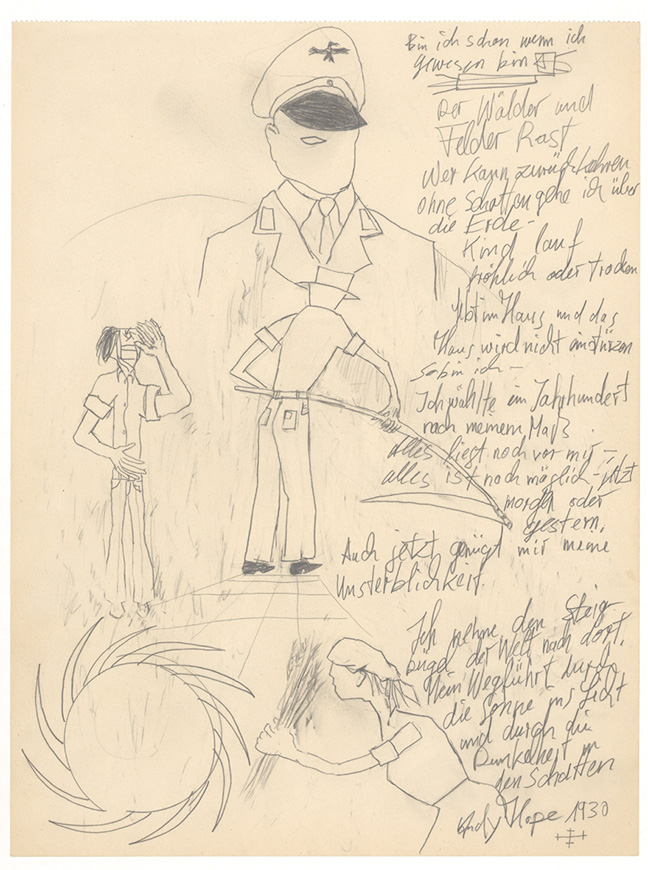 Bin ich schon wenn ich
gewesen bin
Der Wälder und
Felder Rast
Wer kann zurückkehren
ohne Schatten gehe ich über
die Erde –
Kind lauf
fröhlich oder trocken
lebt im Haus und das
Haus wird nicht einstürzen
so bin ich –
Ich wählte ein Jahrhundert
nach meinem Maß.
alles liegt noch vor mir –
alles ist noch möglich – jetzt
morgen oder
gestern.
Auch jetzt genügt mir meine
Unsterblichkeit.
Ich nehme den Steig-
bügel der Welt nach dort.
Mein Weg führt durch
die Sonne ins Licht
und durch die
Dunkelheit in
den Schatten
Andy Hope 1930